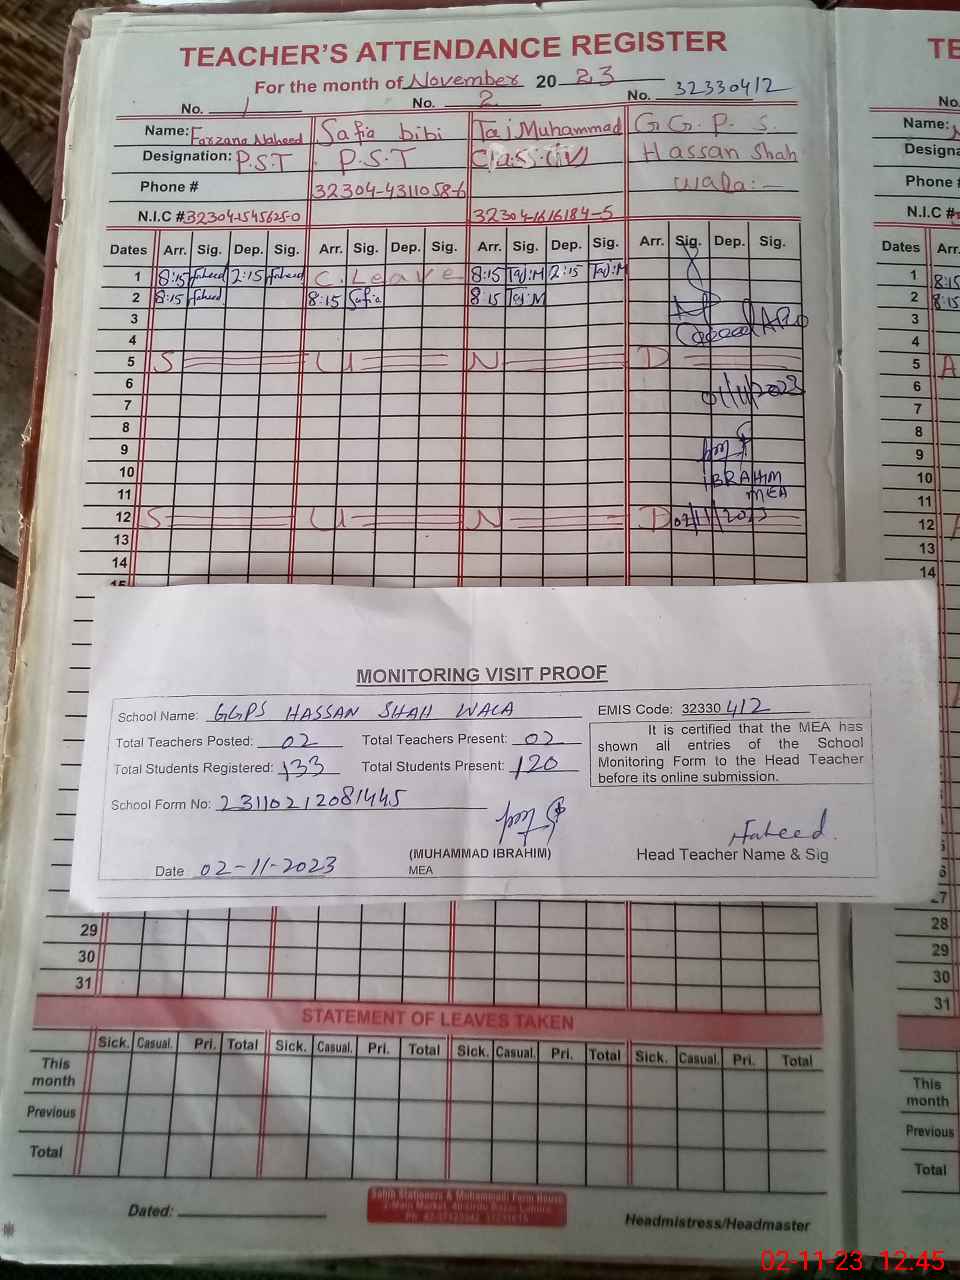 TEACHER'S ATTENDANCE REGISTER
For the month of November 20 23
No. 1 No. 2 No. 32330412
Name: Farzana Naheed Safia bibi Taj Muhammad G G. P. S.
Designation: P.S.T P.S.T Class (iv) Hassan Shah
Phone # 32304-4311058-6 Wala:-
N.I.C # 32304-1545625-0 32304-1616184-5
Dates Arr. Sig. Dep. Sig. Arr. Sig. Dep. Sig. Arr. Sig. Dep. Sig. Arr. Sig. Dep. Sig.
1 8:15 Naheed 2:15 Naheed C. Leave 8:15 Taj:M 2:15 Taj:M
2 8:15 Naheed 8:15 Safia 8:15 Taj:M
3
4
5 S U N D
6
7 01/11/2023
8
9
10 IBRAHIM
11 MEA
12 S U N D 02/11/2023
13
14
15
MONITORING VISIT PROOF
School Name: GGPS HASSAN SHAH WALA EMIS Code: 32330 412
Total Teachers Posted: 02 Total Teachers Present: 02
Total Students Registered: 133 Total Students Present: 120
It is certified that the MEA has
shown all entries of the School
Monitoring Form to the Head Teacher
before its online submission.
School Form No: 23110212081445
Naheed.
(MUHAMMAD IBRAHIM) Head Teacher Name & Sig
Date 02-11-2023 MEA
29
30
31
STATEMENT OF LEAVES TAKEN
Sick. Casual. Pri. Total Sick. Casual. Pri. Total Sick. Casual. Pri. Total Sick. Casual. Pri. Total
This
month
Previous
Total
Dated:
Sahib Stationers & Muhammadi Form House
Headmistress/Headmaster
TE
No.
Name:
Designa
Phone #
N.I.C #
Dates Arr.
1 8:15
2 8:15
3
4
5 A
6
7
8
9
10
11
12
13
14
27
28
29
30
31
This
month
Previous
Total
02-11-23 12:45